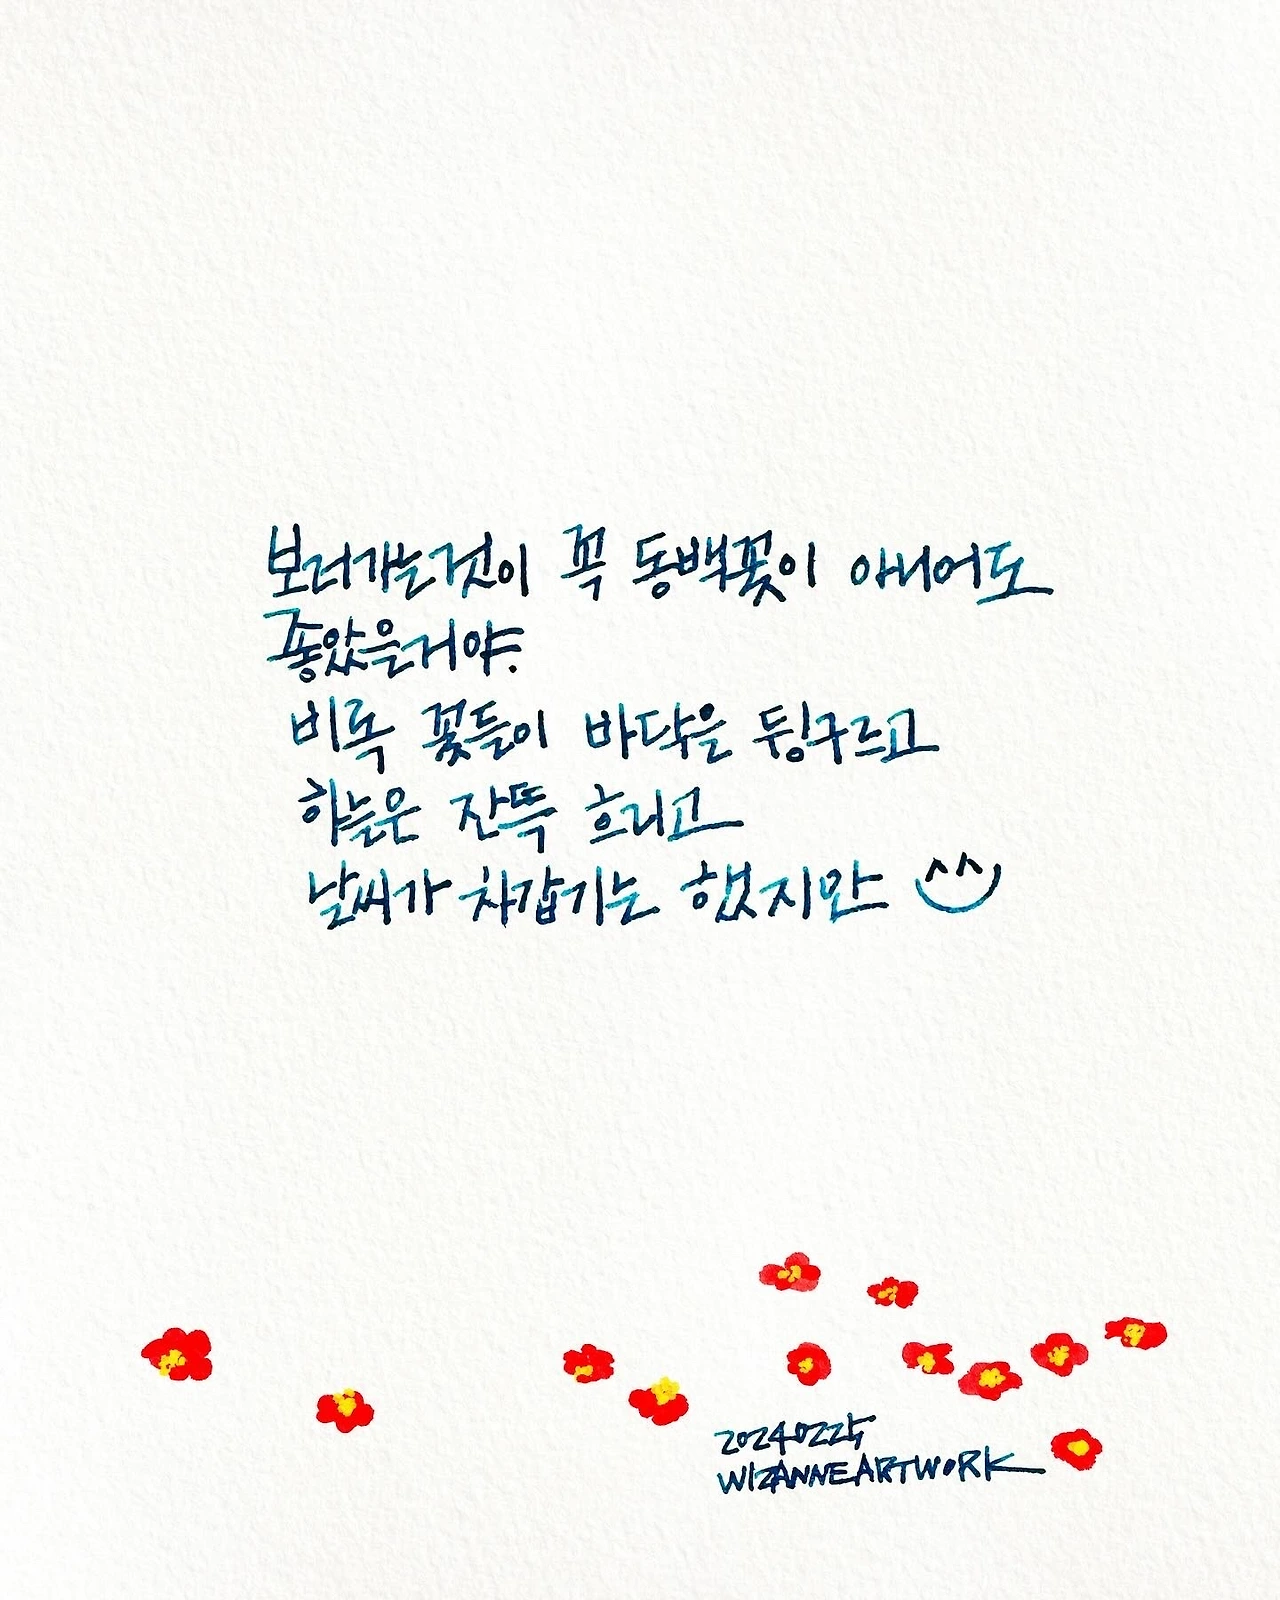 보러가는것이 꼭 동백꽃이 아니어도
좋았을거야.
비록 꽃들이 바닥을 뒹구르고
하늘은 잔뜩 흐리고
날씨가 차갑기는 했지만 ^^
20240225
WIZANNEARTWORK